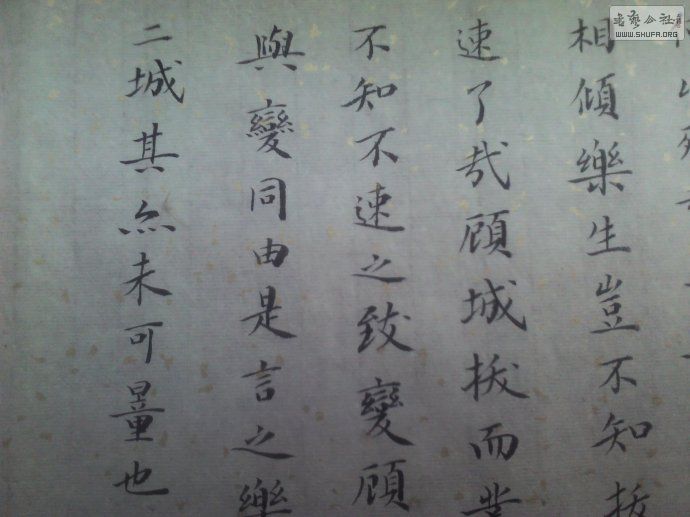 相傾樂生豈不知拔
速了哉顧城拔而業
不知不速之致變顧
與變同由是言之樂
二城其亦未可量也
書藝公社
WWW.SHUFA.ORG